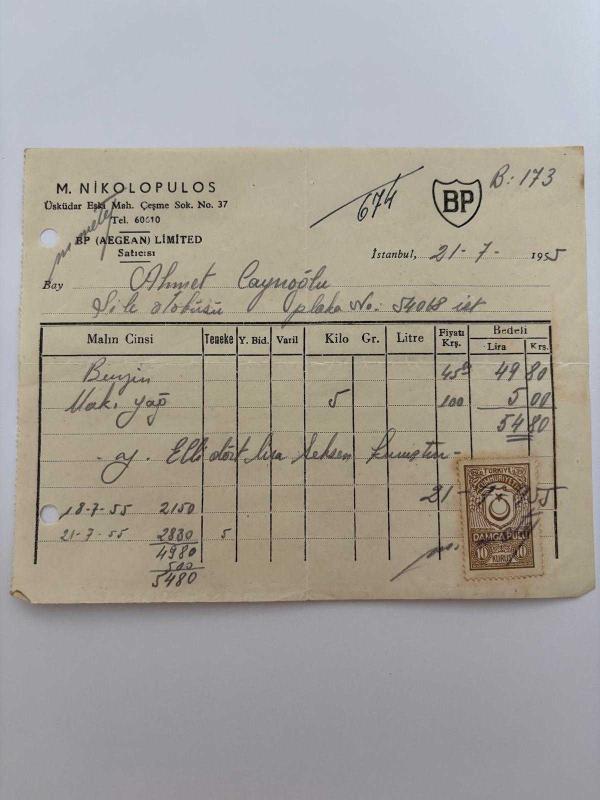 M. NİKOLOPULOS
Üsküdar Eski Mah. Çeşme Sok. No. 37
Tel. 60610
BP (AEGEAN) LIMITED
Satıcısı
674
BP
B: 173
İstanbul, 21-7-1955
Bay Ahmet
Şile otobüsü plaka No: 54068 ist
Malın Cinsi Teneke Y. Bid. Varil Kilo Gr. Litre Fiyatı Krş. Bedeli Lira Krş.
Benzin 49 80
Mak. yağ 5 100 5 00
54 80
Elli dört lira seksen kuruştur
21-7-955
18-7-55 2150
21-7-55 2830 5
4980
500
5480
TÜRKİYE CUMHURİYETİ
DAMGA PULU
10 KURUŞ 10